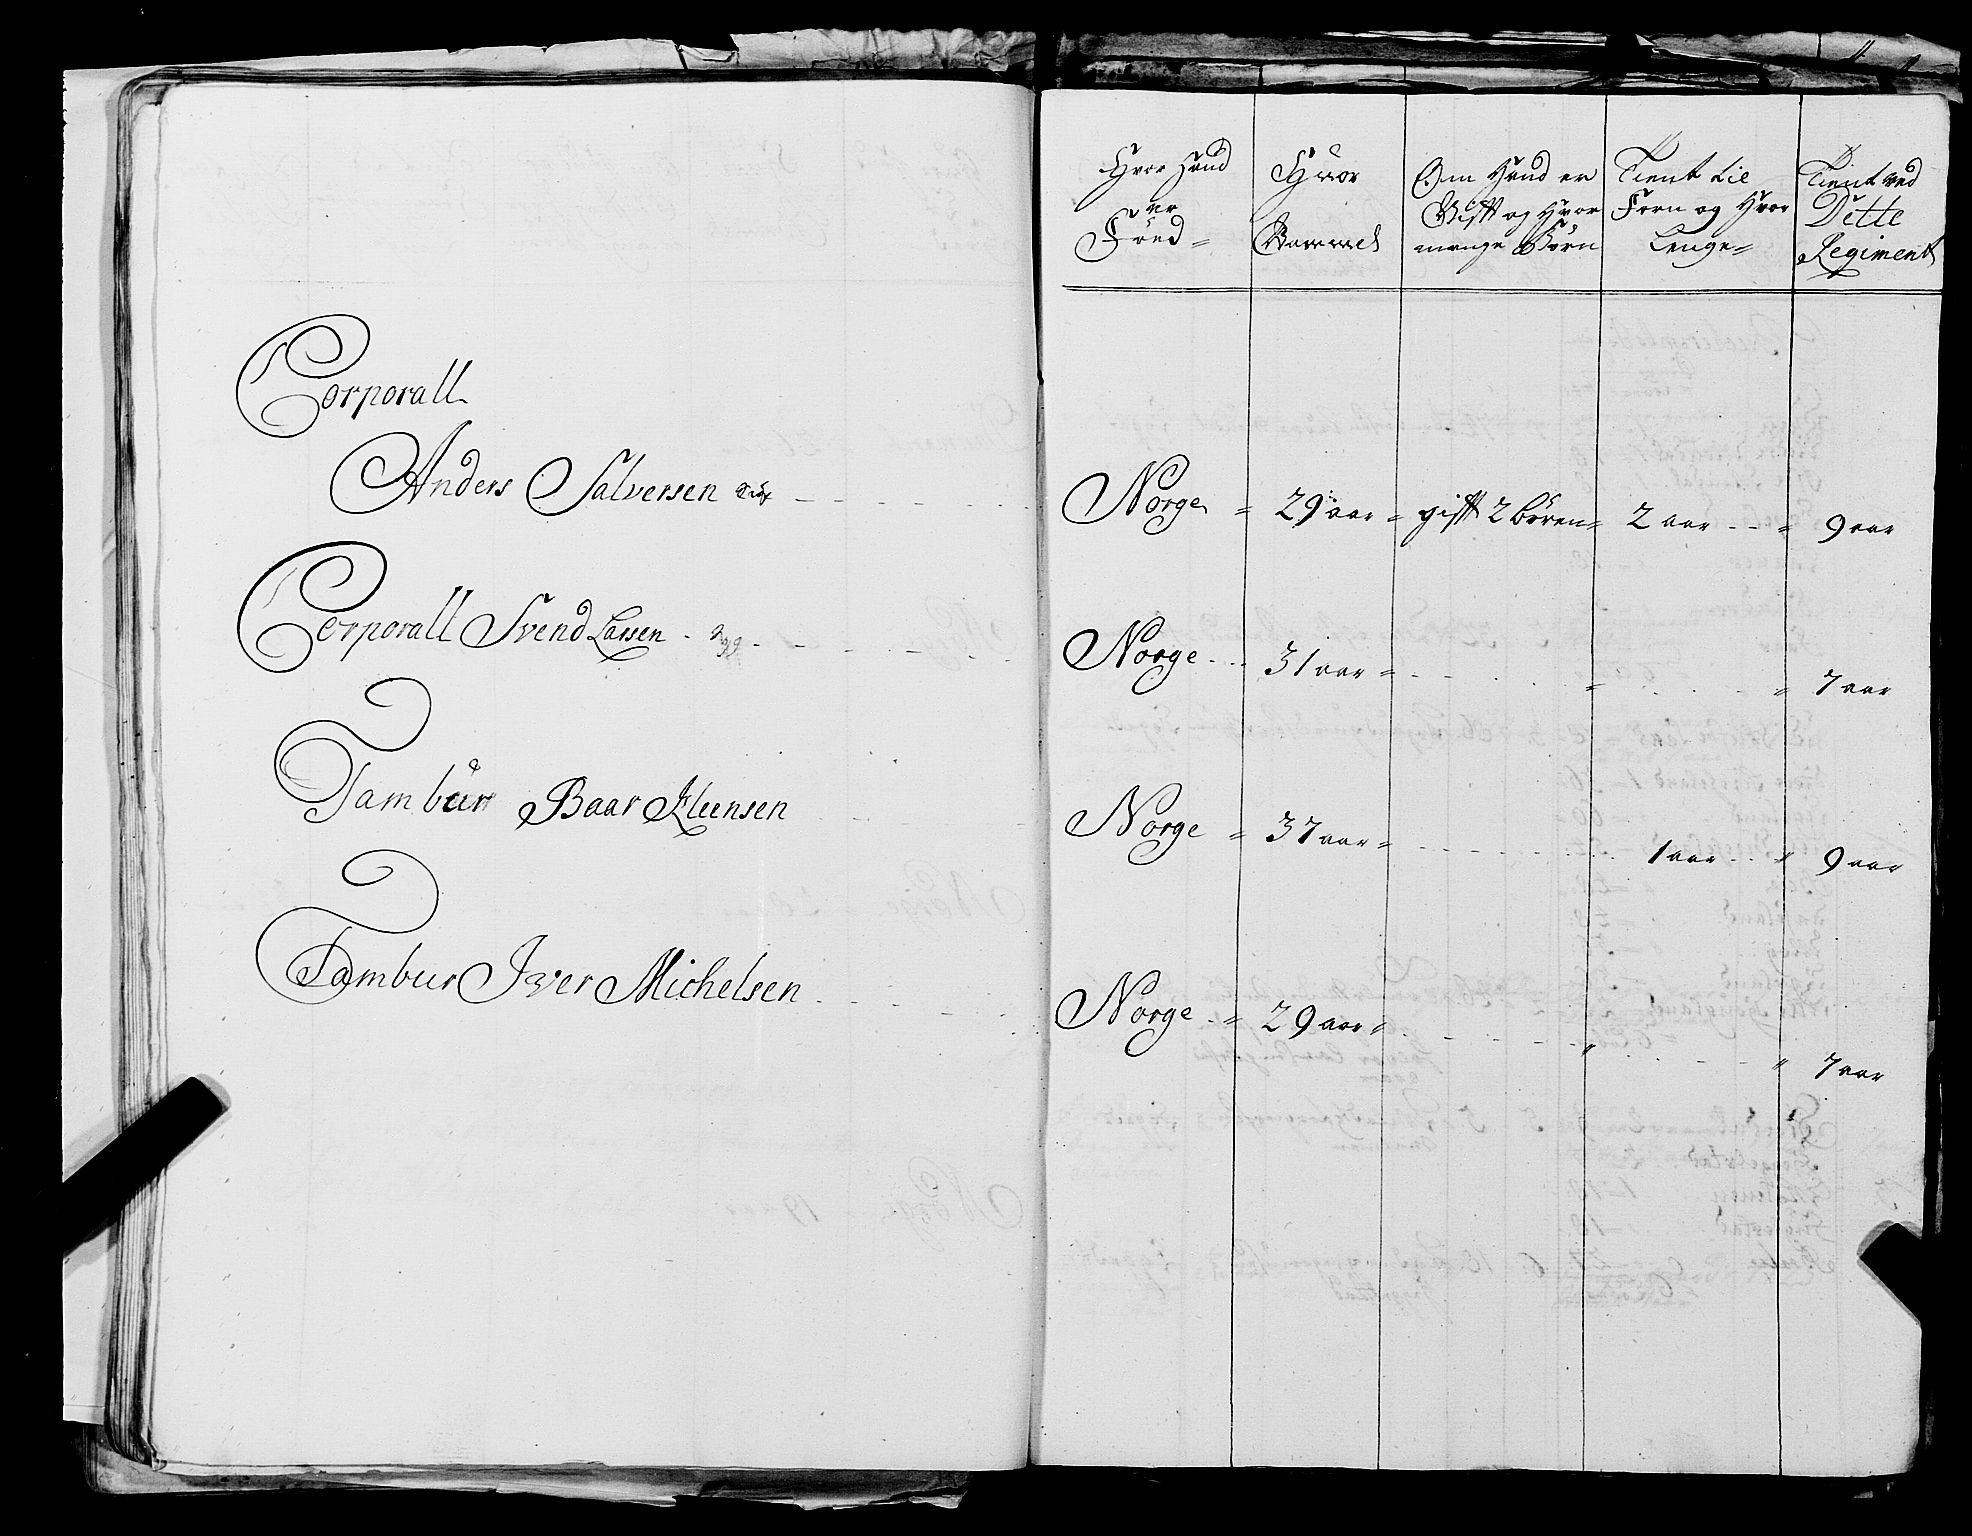 Corporall
Anders Salversen
Corporall Svend Larsen
Tambur Baar Eleensen
Tambur Iver Michelsen
Hvor Hand er Föed
Hvor Gammel
Om Hand er Gift og Hvor mange Börn
Tient tie Forn og Hvor Lenge
Tient ved Dette Regiment
Norge 29 aar gift 2 Bören 2 aar 9 aar
Norge 31 aar 7 aar
Norge 37 aar 1 aar 9 aar
Norge 29 aar 7 aar